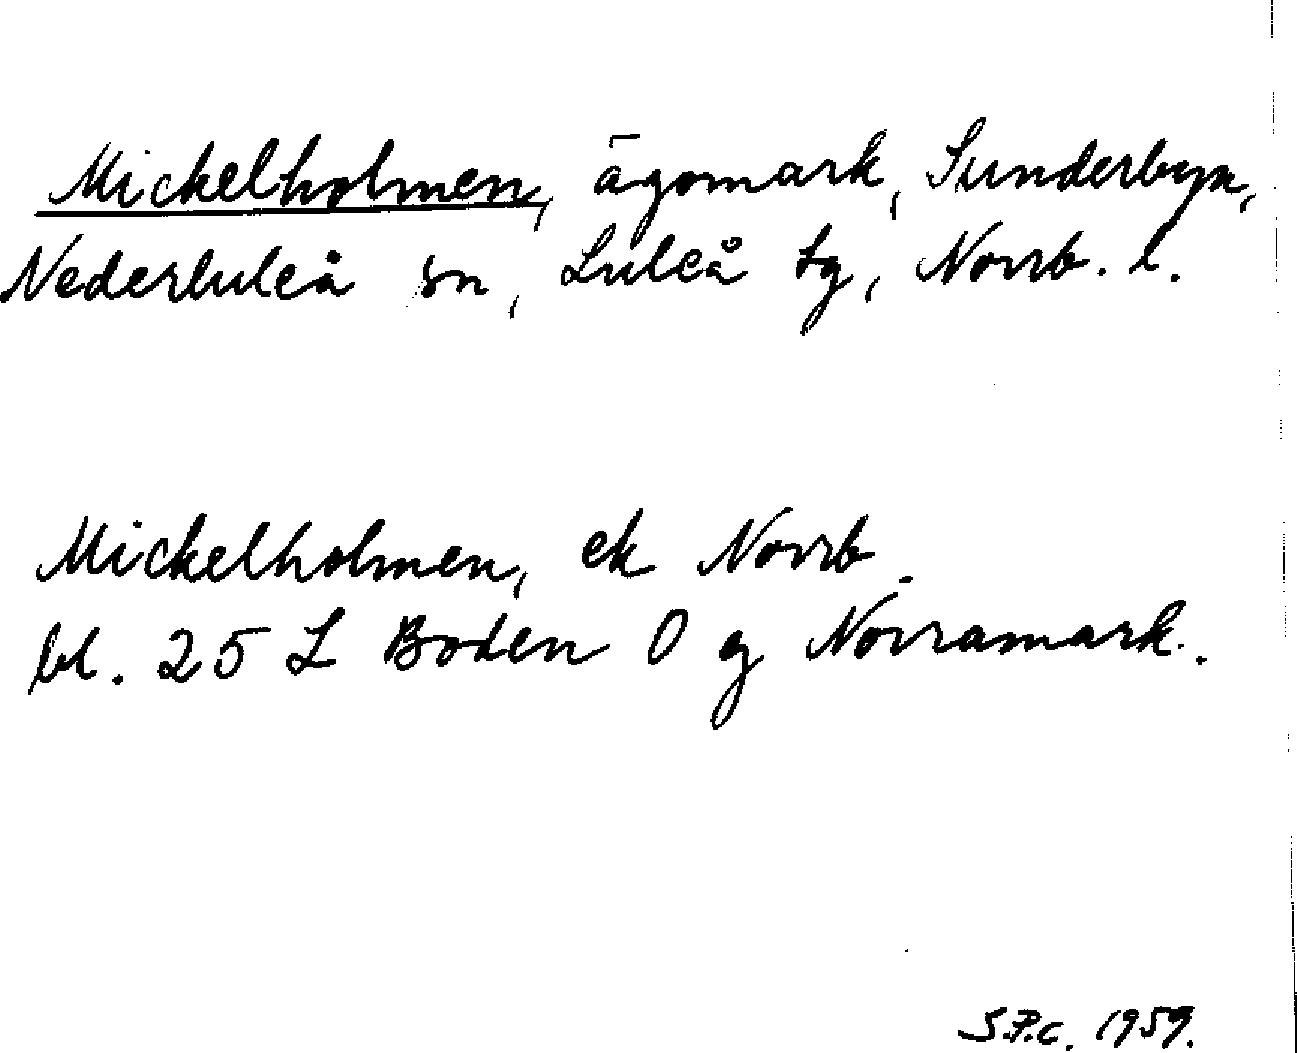 Mickelholmen, ägomark, Sunderbyn,
Nederluleå sn, Luleå tg, Norrb. l.
Mickelholmen, ek Norrb.
bl. 25 L Boden O g Norramark.
S.P.C. 1959.